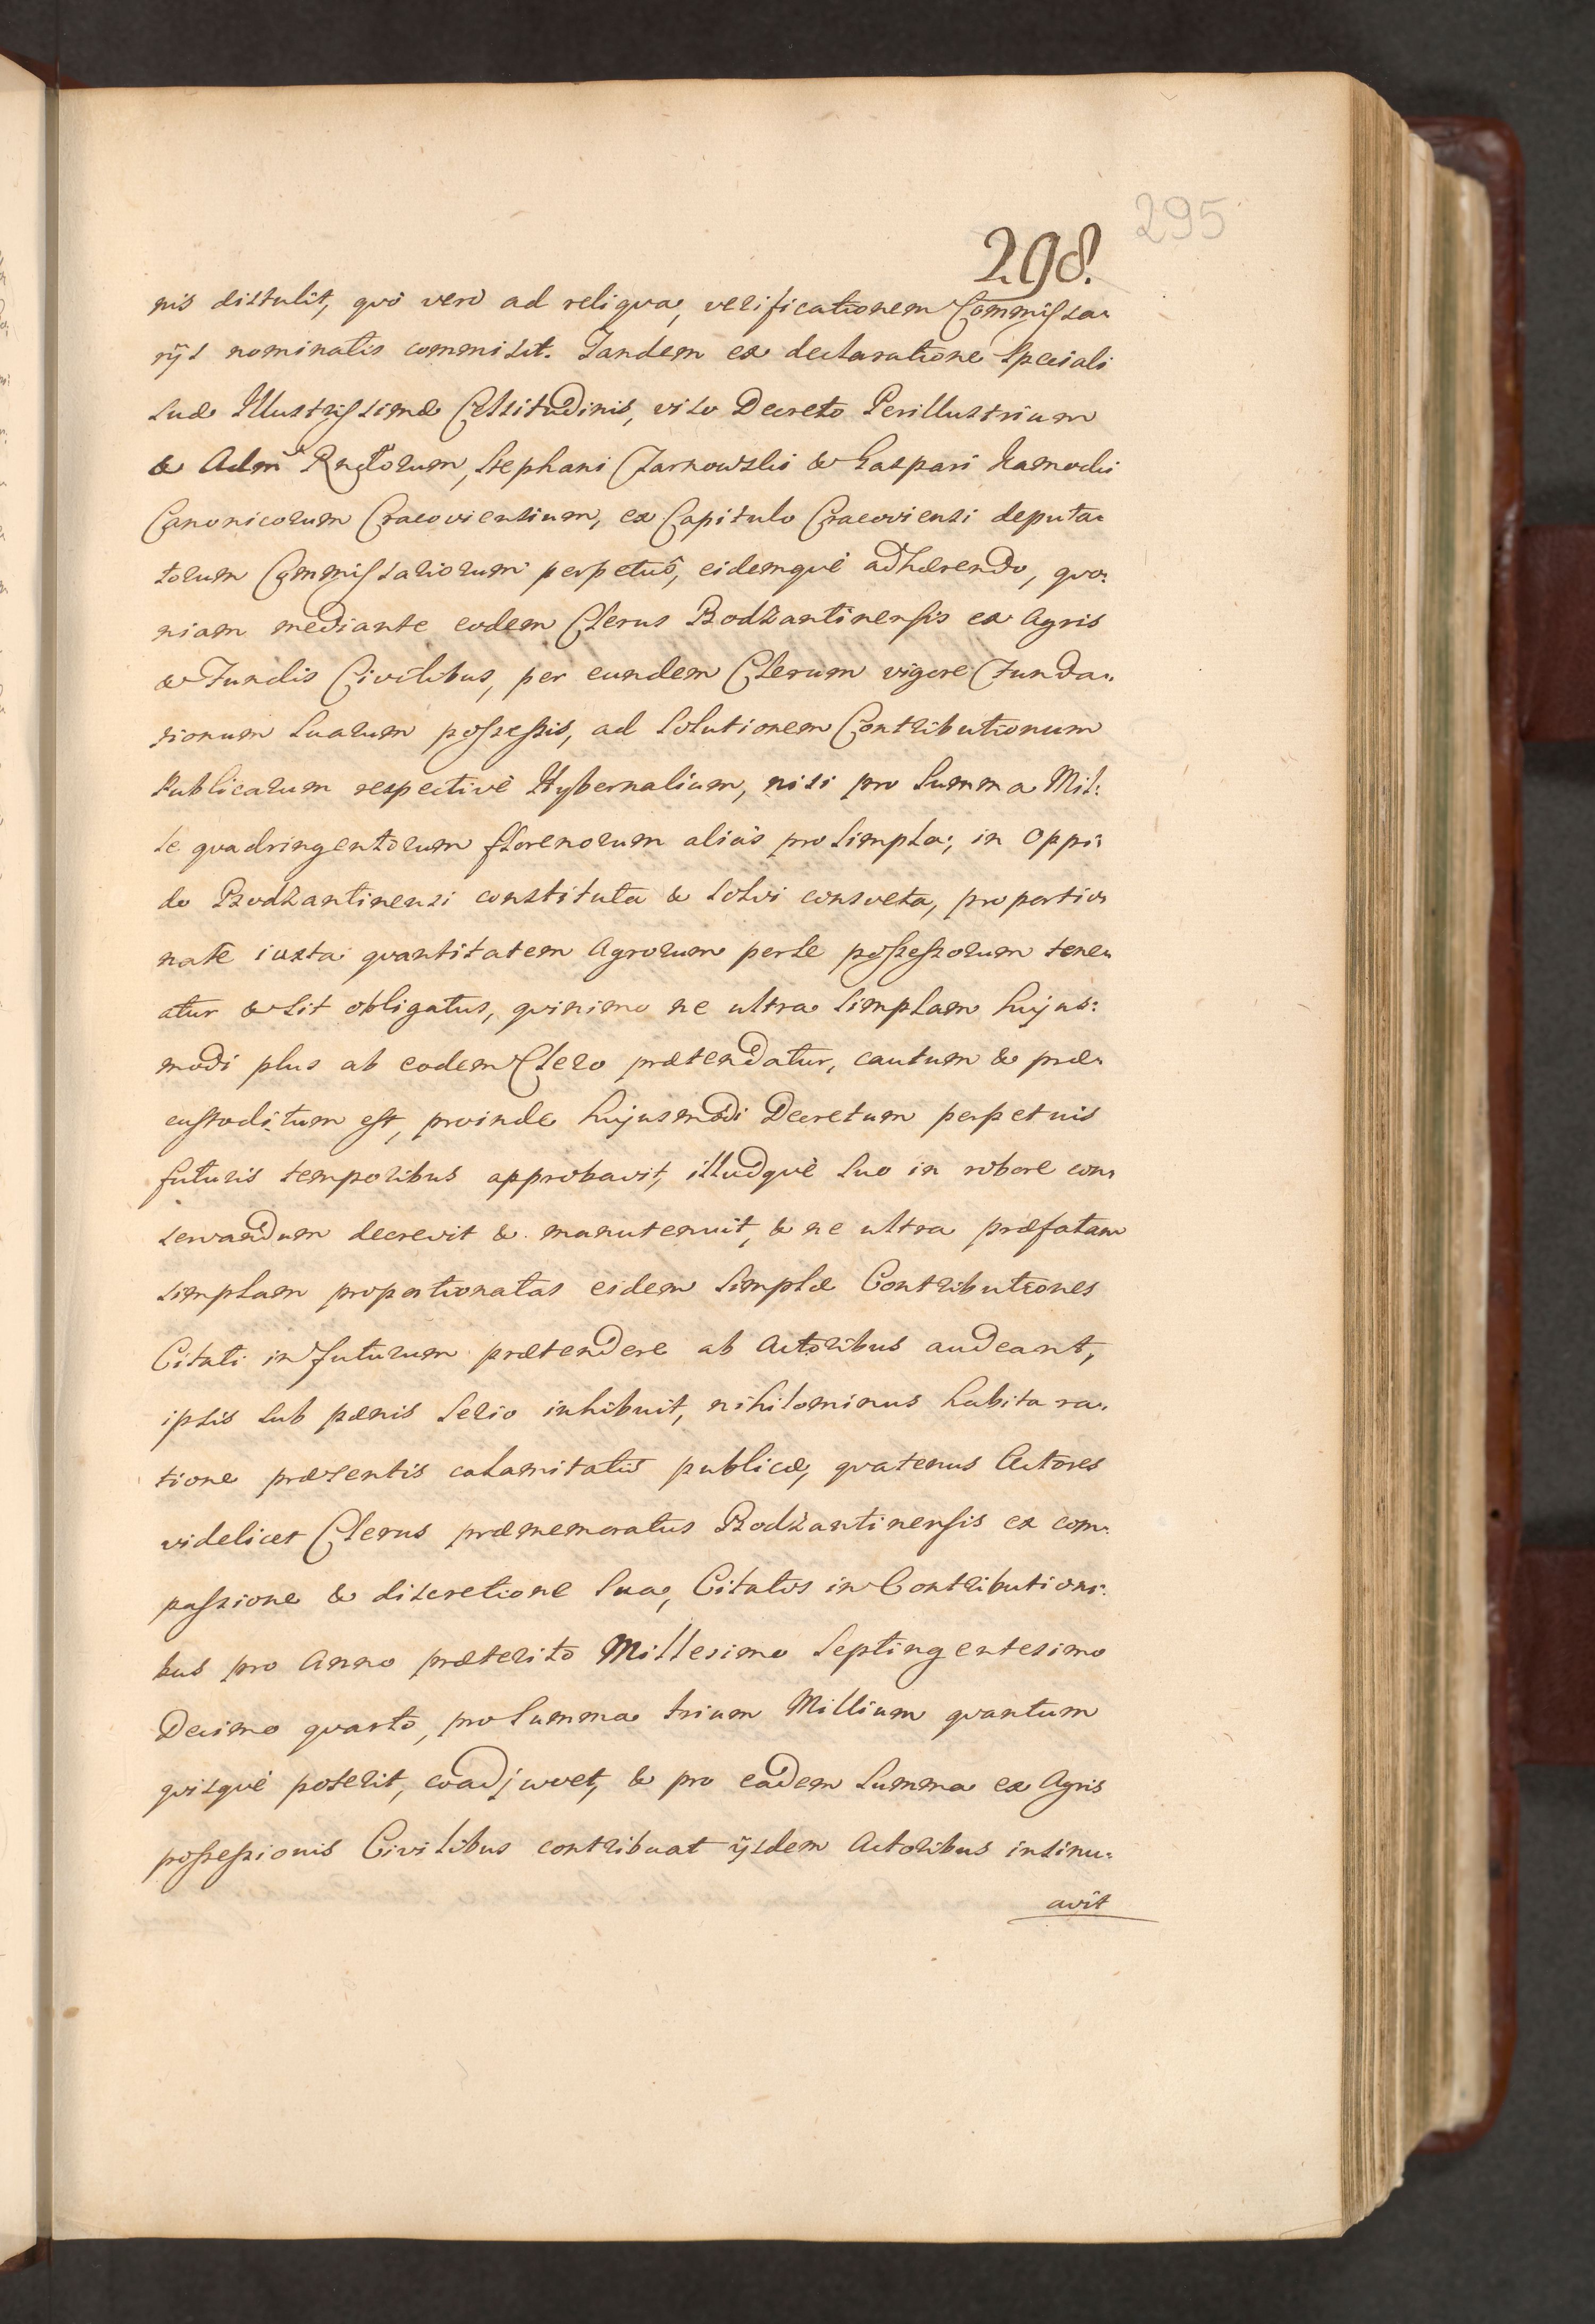 295
298.
nis distulit, quò verò ad reliqua, verificationem Commissa:
rijs nominatis commisit. Tandem ex declaratione speciali
suæ Illustrissimæ Celsitudinis, viso Decreto Perillustrium
& Adm Rndorum, Stephani Czarnowski & Gaspari
Canonicorum Cracoviensium, ex Capitulo Cracoviensi deputa:
torum Commissariorum perpetuô, eidemquè adhærendo, quo:
niam mediante eodem Clerus Bodzantinensis ex Agris
& Fundis Civilibus, per eundem Clerum vigore Funda:
tionum suarum possessis, ad solutionem Contributionum
Publicarum respectivè Hybernalium, nisi pro summa Mil:
le quadringentorum florenorum aliàs pro simpla; in Oppi:
do Bodzantinensi constituta & solvi consveta, proportio:
nate iuxta quantitatem Agrorum per se possessorum tene:
atur & sit obligatus, quinimo ne ultra simplam hujus:
modi plus ab eodem Clero prætendatur, cautum & præ:
custoditum est, proinde hujusmodi Decretum perpetuis
futuris temporibus approbavit, illudquè suo in robore con:
servandum decrevit & manutenuit, & ne ultra præfatam
simplam proportionatas eidem simplæ Contributiones
Citati in futurum prætendere ab Actoribus audeant,
ipsis sub pænis serio inhibuit, nihilominus habita ra:
tione præsentis calamitatis publicæ, quatenus Actores
videlicet Clerus præmemoratus Bodzantinensis ex com:
passione & discretione sua, Citatos in Contributioni:
bus pro Anno præterito Millesimo Septingentesimo
Decimo quarto, pro summa trium Millium quantum
quisquè poterit, coadjuvet, & pro eadem summa ex Agris
possessionis Civilibus contribuat ijsdem Actoribus insinu:
avit